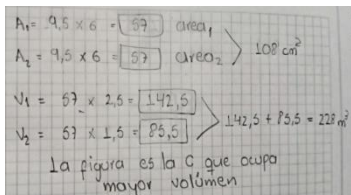 A₁ = 9,5 × 6 = 57 area₁
A₂ = 9,5 × 6 = 57 area₂
108 cm²
V1 = 57 × 2,5 = 142,5
V2 = 57 × 1,5 = 85,5
142,5 + 85,5 = 228 m³
La figura es la C que ocupa
mayor volúmen